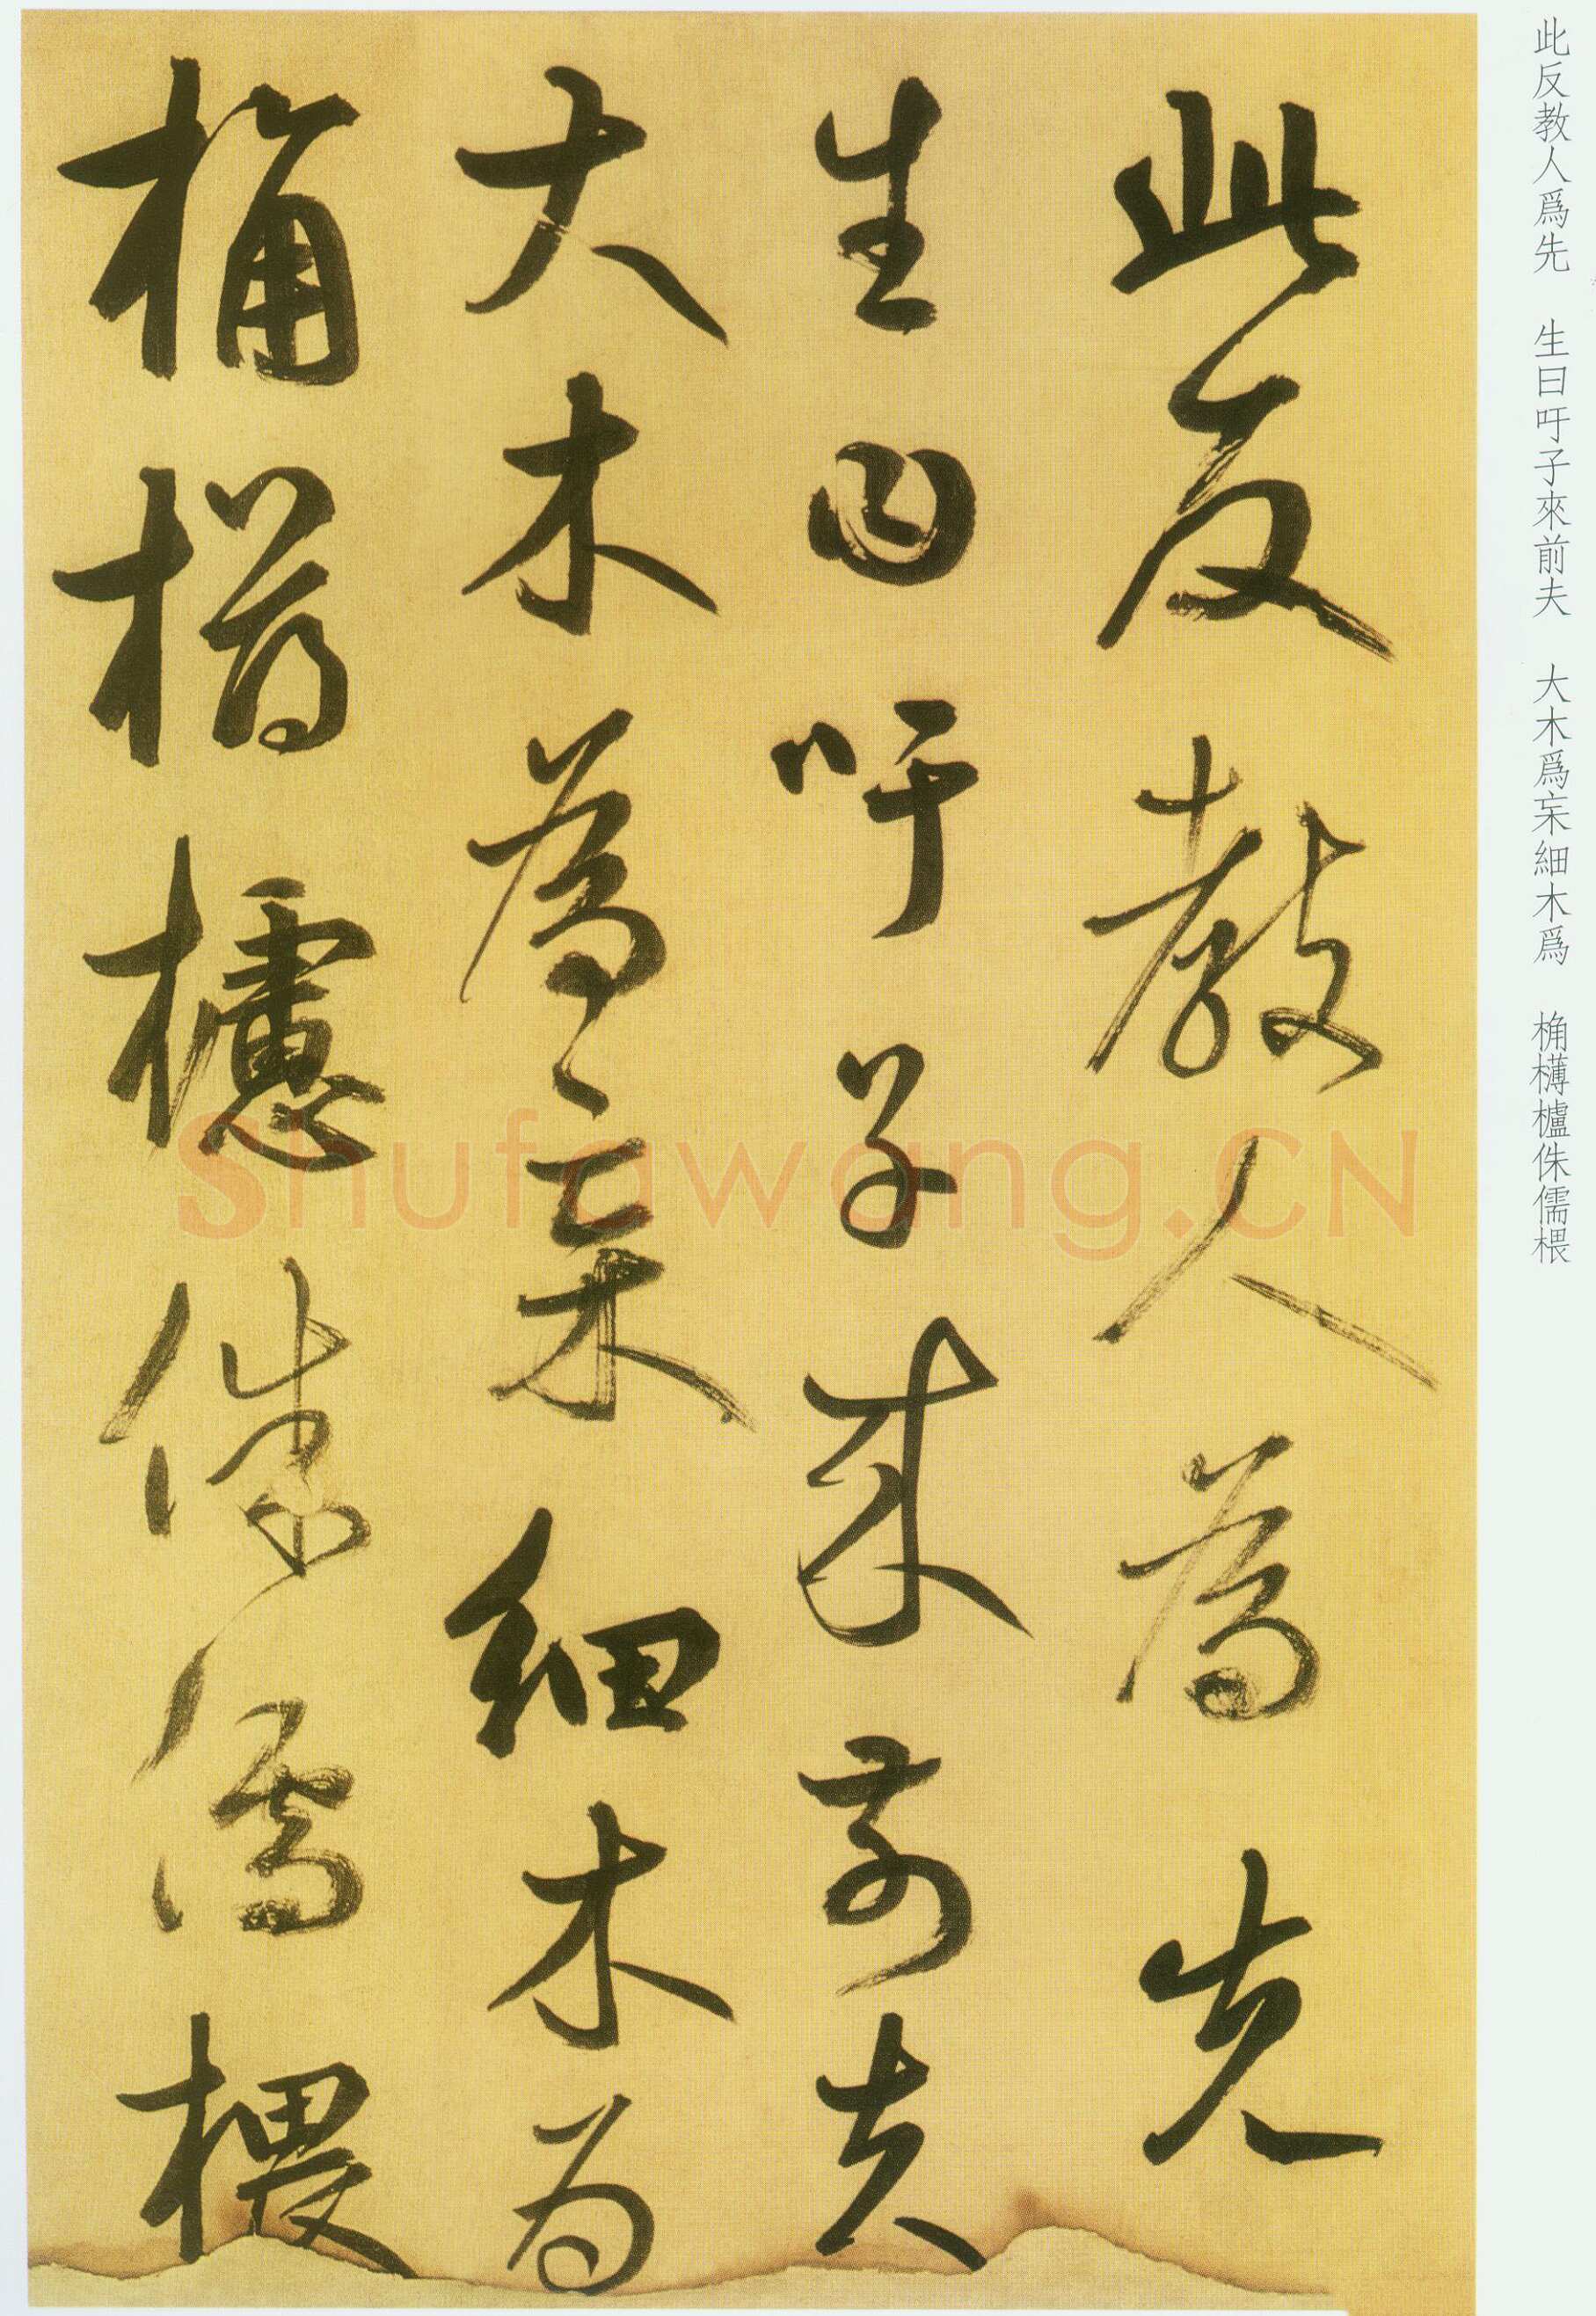 此反教人爲先 生曰吁子來前夫 大木爲杗細木爲 桷欂櫨侏儒椳
此反教人為先
生曰吁子来前夫
大木為杗細木为
桷欂櫨侏儒椳
Shufawang.CN